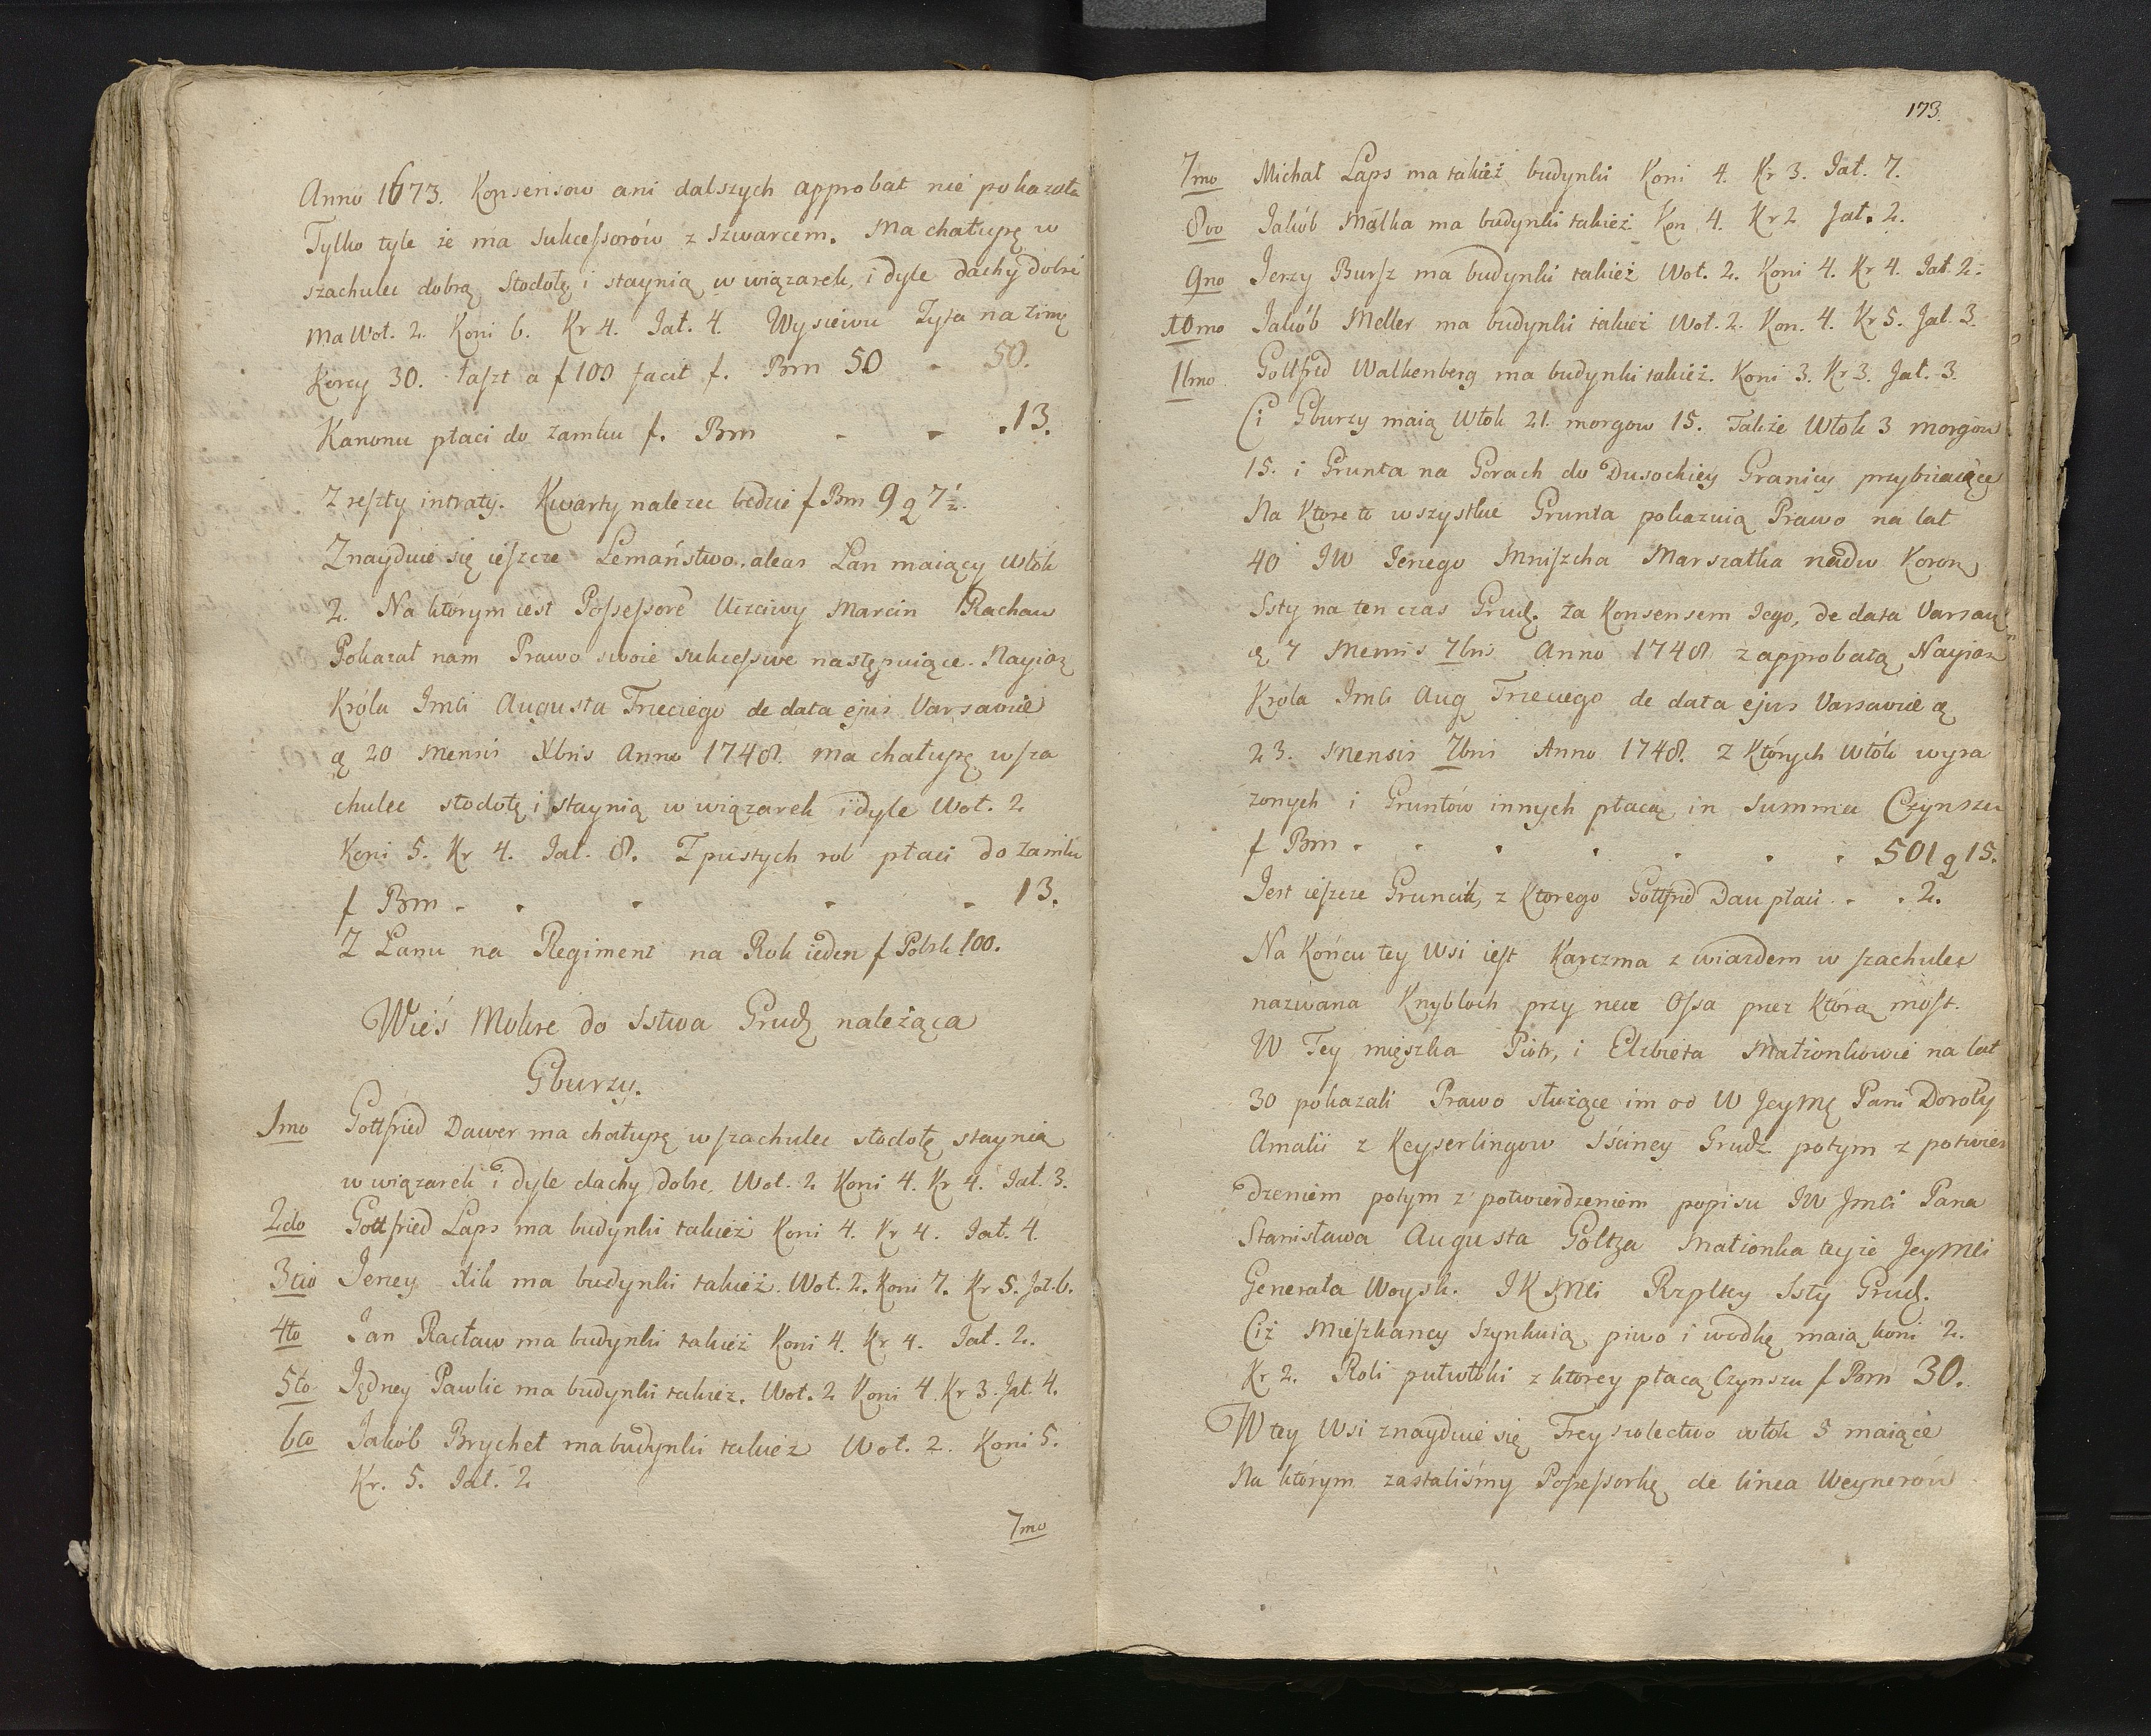 Anno 1673. Konsensow ani dalszych approbat nie pokazała
Tylko tyle że ma Sukcessorów z Szwarcem. Ma chałupę w
szachulec dobrą Stodołę i staynią w wiązarek, i dyle dachy dobré
Ma Woł. 2. Koni 6. Kr 4. Jał. 4. Wysiewu Żyta na zimę
Korcy 30. łaszt a f 100 facit f. Brn 50 - 50.
Kanonu płaci do zamku f. Brn - - . 13.
Z reszty intraty. Kwarty nalezec będzie f Brn 9 g 7½.
Znayduie się ieszcze Lemaństwo, aleas Lan maiący Włók
2. Na którym iest Possessore Uczciwy Marcin Rachaw
Pokazał nam Prawo swoie sukcessive następuiące. Nayias
Króla Jmci Augusta Trzeciego de data ejus Varsavie
ą 20 Mensis Xbris Anno 1748. ma chałupę w sza
chulec stodołę i staynią w wiązarek i dyle Woł. 2
Koni 5. Kr 4. Jał. 8. Z pustych rol płaci do zamku
f Brn - . . . - 13.
Z Lanu na Regiment na Rok ieden f Polsk 100.
Wieś Mokre do Sstwa Grudz należąca
Gburzy.
1mo Gottfried Dawer ma chałupę w szachulec stodołę staynią
w wiązarek i dyle dachy dobre. Woł. 2 Koni 4. Kr 4. Jał. 3.
2do Gottfried Laps ma budynki takież Koni 4. Kr 4. Jał. 4.
3tio Jerzey Xik ma budynki takież. Woł. 2. Koni 7. Kr 5. Jał. 6.
4to Jan Racław ma budynki takież Koni 4. Kr 4. Jał. 2.
5to Jędrzey Pawlic ma budynki takież. Woł. 2 Koni 4. Kr 3. Jał. 4.
6to Jakób Brychet ma budynki takież Woł. 2. Koni 5.
Kr. 5. Jał. 2
7mo
173.
7mo Michał Laps ma takież budynki Koni 4. Kr 3. Jał. 7.
8vo Jakób Małka ma budynki takież. Kon 4. Kr 2 Jał. 2.
9no Jerzy Bursz ma budynki takież Woł. 2. Koni 4. Kr 4. Jał. 2.
10mo Jakób Meller ma budynki takież Woł. 2. Kon. 4. Kr 5. Jał. 3.
11mo Gottfred Walkenberg ma budynki takież. Koni 3. Kr 3. Jał. 3.
Ci Gburzy maią Włok 21. morgow 15. Także Włok 3 morgow
15. i Grunta na Gorach do Dusockiey Granicy przybieraiące
Na Które te wszystkie Grunta pokazuią Prawo na lat
40 JW Jerzego Mniszcha Marszałka nadw Koron
Ssty na ten czas Grudz. za Konsensem Jego, de data Varsav
ą 7 Mensis 7bris Anno 1748 z approbatą Nayias
Króla Jmci Aug Trzeciego de data ejus Varsavie ą
23. Mensis 7bris Anno 1748. z Których Włók wyra
zonych i Gruntów innych płacą in Summa Czynszu
f Brn . . . . . . . 501 g 15.
Jest ieszcze Gruncik, z Ktorego Gottfrid Dau płaci . . 2.
Na Końcu tey Wsi iest Karczma z wiazdem w szachulec
nazwana Knybloch przy rzece Ossa przez Którą most.
W Tey mięszka Piotr, i Elzbieta Małzonkowie na lat
30 pokazali Prawo służące im od W Jeymę Pani Doroty
Amalii z Keyserlingow Sściney Grudz. potym z potwier
dzeniem potym z potwierdzeniem popisu JW Jmci Pana
Stanisława Augusta Goltza Małzonka teyże Jeymci
Generała Woysk. JKJMci Rzpltey Ssty Grudz.
Ciż Mieszkancy Szynkuią piwo i wodkę maią koni 2.
Kr 2. Roli pułwłoki z ktorey płacą Czynszu f Brn 30.
W tey Wsi znayduie się Freyszolectwo włók 5 maiące
Na którym zastaliśmy Possessorkę de linea Weynerów